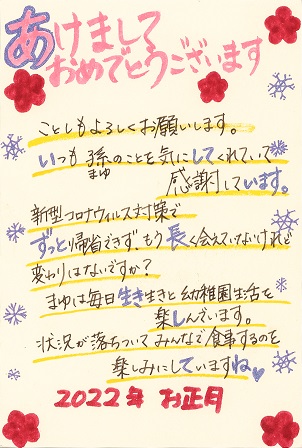 あけまして
おめでとうございます
ことしもよろしくお願いします。
いつも孫のことを気にしてくれていて
まゆ
感謝しています。
新型コロナウィルス対策で
ずっと帰省できず、もう長く会えていないけれど
変わりはないですか？
まゆは毎日生き生きと幼稚園生活を
楽しんでいます。
状況が落ちついてみんなで食事するのを
楽しみにしていますね
2022年 お正月